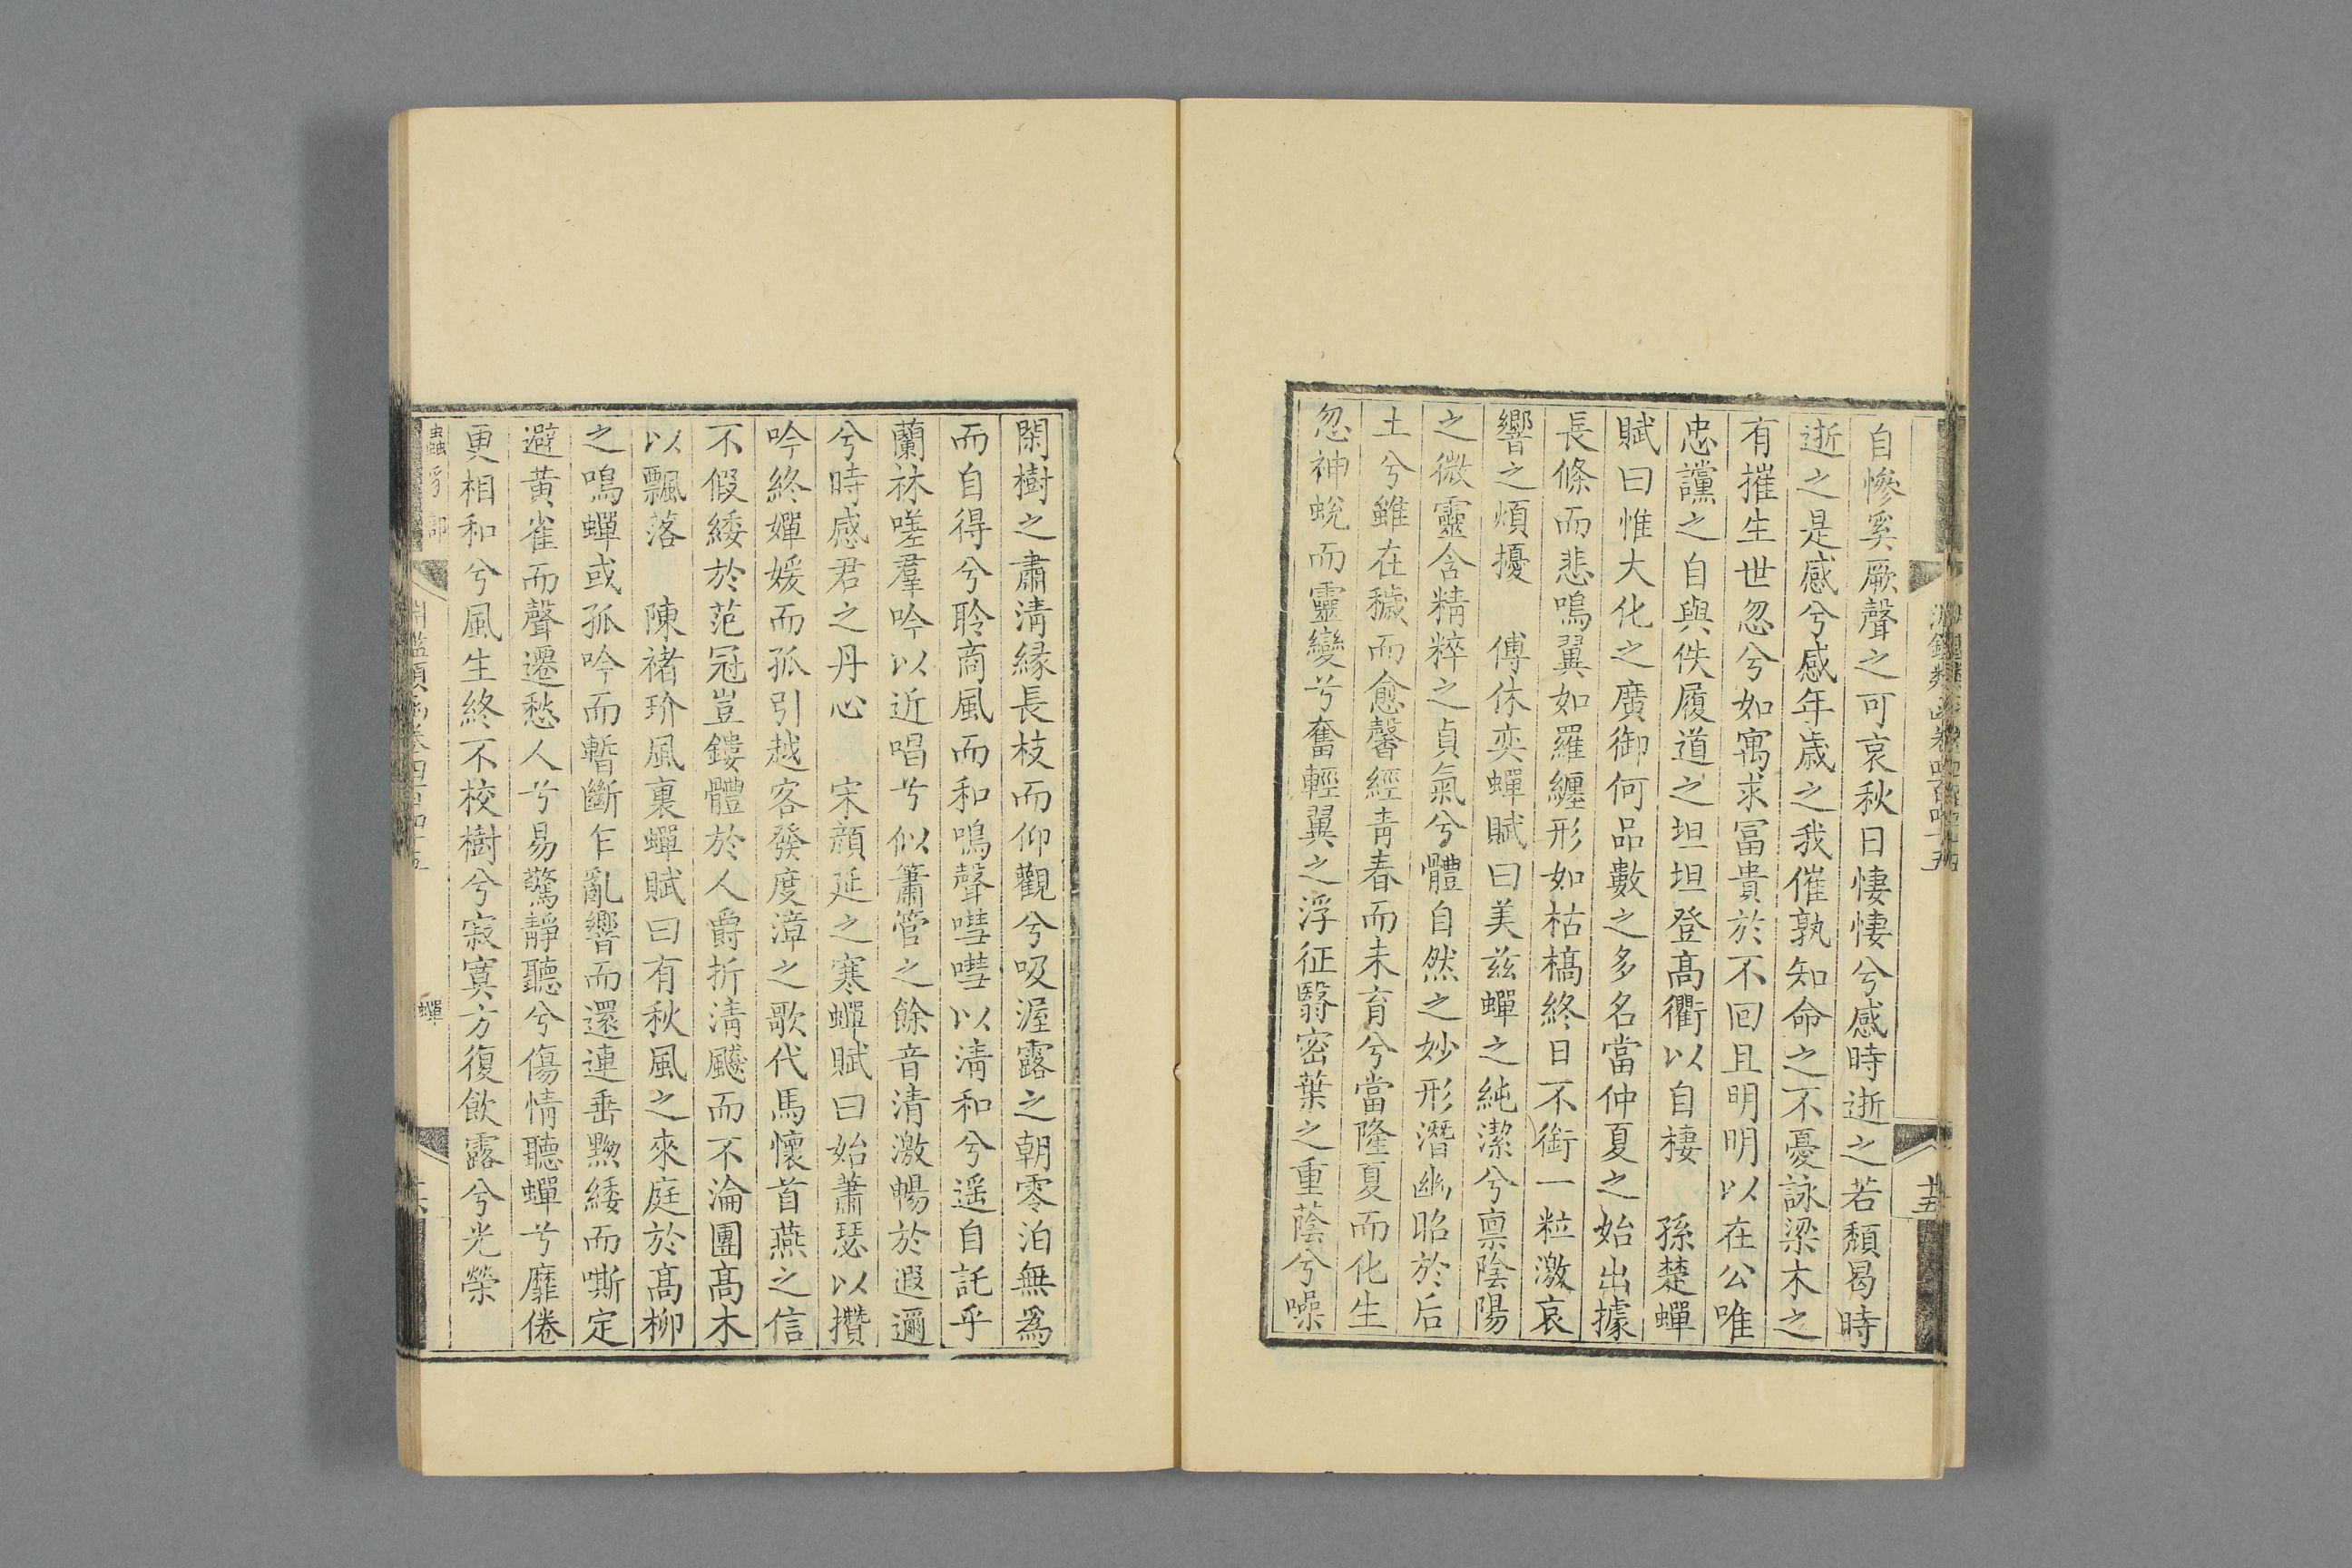 自慘奚厥聲之可哀秋日悽悽兮感時逝之若頹曷時
逝之是感兮感年歲之我催孰知命之不憂詠梁木之
有摧生世忽兮如寓求冨貴於不回且明明以在公唯
忠讜之自與佚履道之坦坦登髙衢以自棲　孫楚蟬
賦曰惟大化之廣御何品數之多名當仲夏之始出據
長條而悲鳴翼如羅纏形如枯槁終日不銜一粒激哀
響之煩擾　傅休奕蟬賦曰美兹蟬之純潔兮禀陰陽
之微靈含精粹之貞氣兮體自然之妙形潛幽昭於后
土兮雖在穢而愈馨經青春而未育兮當隆夏而化生
忽神蛻而靈變兮奮輕翼之浮征翳密葉之重蔭兮噪
閑樹之肅清縁長枝而仰觀兮吸渥露之朝零泊無爲
而自得兮聆商風而和鳴聲嘒嘒以清和兮遥自託乎
蘭林嗟羣吟以近唱兮似簫管之餘音清激暢於遐邇
兮時感君之丹心　宋顔延之寒蟬賦曰始蕭瑟以攢
吟終嬋媛而孤引越客發度漳之歌代馬懷首燕之信
不假緌於范冠豈鏤體於人爵折清飈而不淪團髙木
以飄落　陳褚玠風裏蟬賦曰有秋風之來庭於髙柳
之鳴蟬或孤吟而暫斷乍亂響而還連垂黝緌而嘶定
避黃雀而聲遷愁人兮易驚靜聽兮傷情聽蟬兮靡倦
更相和兮風生終不校樹兮寂寞方復飲露兮光榮
蟬